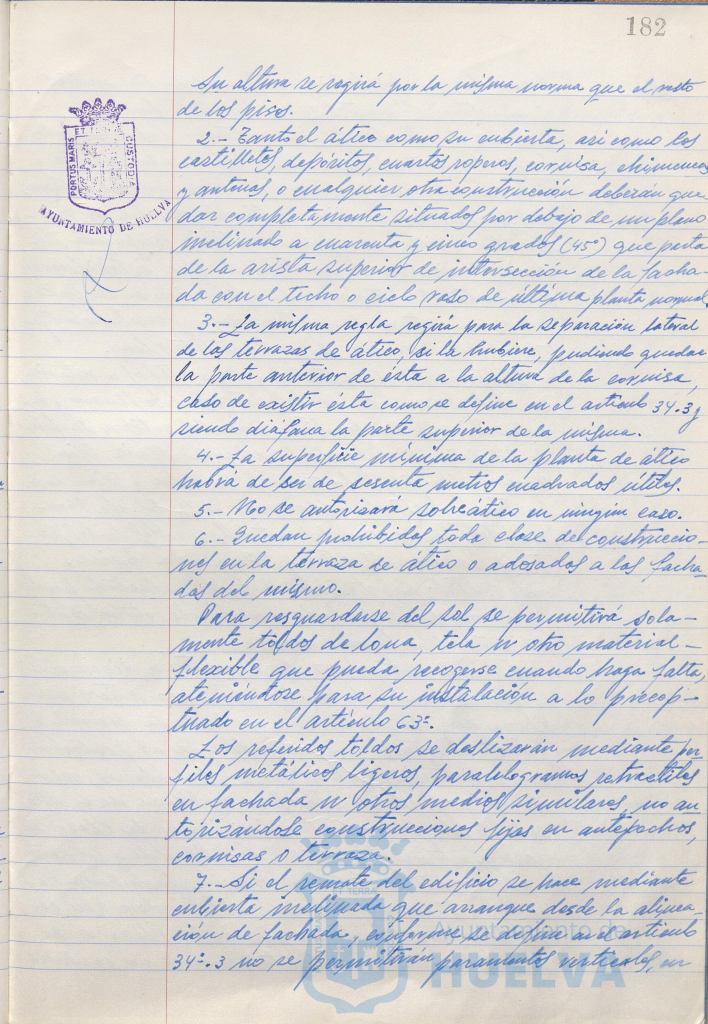 182
PORTUS MARIS ET TERRAE CUSTODIA
AYUNTAMIENTO DE HUELVA
Su altura se regirá por la misma norma que el resto
de los pisos.
2.- Tanto el ático como su cubierta, así como los
castilletes, depósitos, cuartos roperos, cornisa, chimeneas
y antenas, o cualquier otra construcción deberán que
dar completamente situados por debajo de un plano
inclinado a cuarenta y cinco grados (45º) que parta
de la arista superior de intersección de la facha-
da con el techo o cielo raso de última planta normal.
3.- La misma regla regirá para la separación lateral
de las terrazas de ático, si la hubiere, pudiendo quedar
la parte anterior de ésta a la altura de la cornisa,
caso de existir ésta como se define en el artículo 34.3 y
siendo diáfana la parte superior de la misma.
4.- La superficie mínima de la planta de ático
habrá de ser de sesenta metros cuadrados útiles.
5.- No se autorizará sobreático en ningún caso.
6.- Quedan prohibidos toda clase de construccio-
nes en la terraza de ático o adosados a las facha-
das del mismo.
Para resguardarse del sol se permitirá sola-
mente toldos de lona, tela u otro material-
flexible que pueda recogerse cuando haga falta,
ateniéndose para su instalación a lo precep-
tuado en el artículo 63º.
Los referidos toldos se deslizarán mediante per
files metálicos ligeros, paralelogramos retractiles
en fachada u otros medios similares, no au-
torizándose construcciones fijas en antepechos,
cornisas o terraza.
7.- Si el remate del edificio se hace mediante
cubierta inclinada que arranque desde la alinea-
ción de fachada, conforme se define en el artículo
34º.3 no se permitirán paramentos verticales, en
Ayuntamiento de
HUELVA